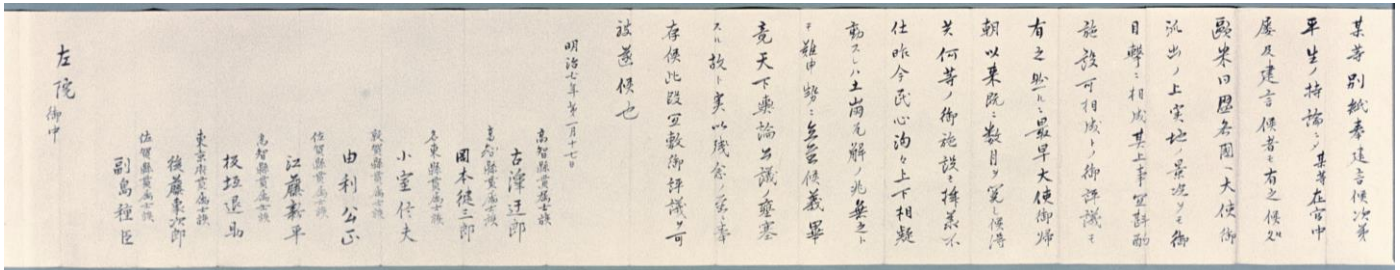 某等別紙奉建言候次第
平生ノ持論ニシテ某等在官中
屡及建言候者モ有之候処
歐米同盟各國ヘ大使御
派出ノ上実地ノ景況ヲモ御
目撃ニ相成其上事宜斟酌
施設可相成トノ御評議モ
有之然ルニ最早大使御帰
朝以来既ニ数月ヲ閲シ候得
共何等ノ御施設モ拝承不
仕昨今民心洶々上下相疑
動スレハ土崩瓦解ノ兆無之ト
モ難申勢ニ立至候義畢
竟天下輿論公議ノ壅塞
スル故ト実以残念ノ至ニ奉
存候此段宜敷御評議ヲ可
被遂候也
明治七年第一月十七日
高智縣貫属士族
古澤迂郎
高智縣貫属士族
岡本健三郎
名東縣貫属士族
小室信夫
敦賀縣貫属士族
由利公正
佐賀縣貫属士族
江藤新平
高智縣貫属士族
板垣退助
東京府貫属士族
後藤象次郎
佐賀縣貫属士族
副島種臣
左院
御中